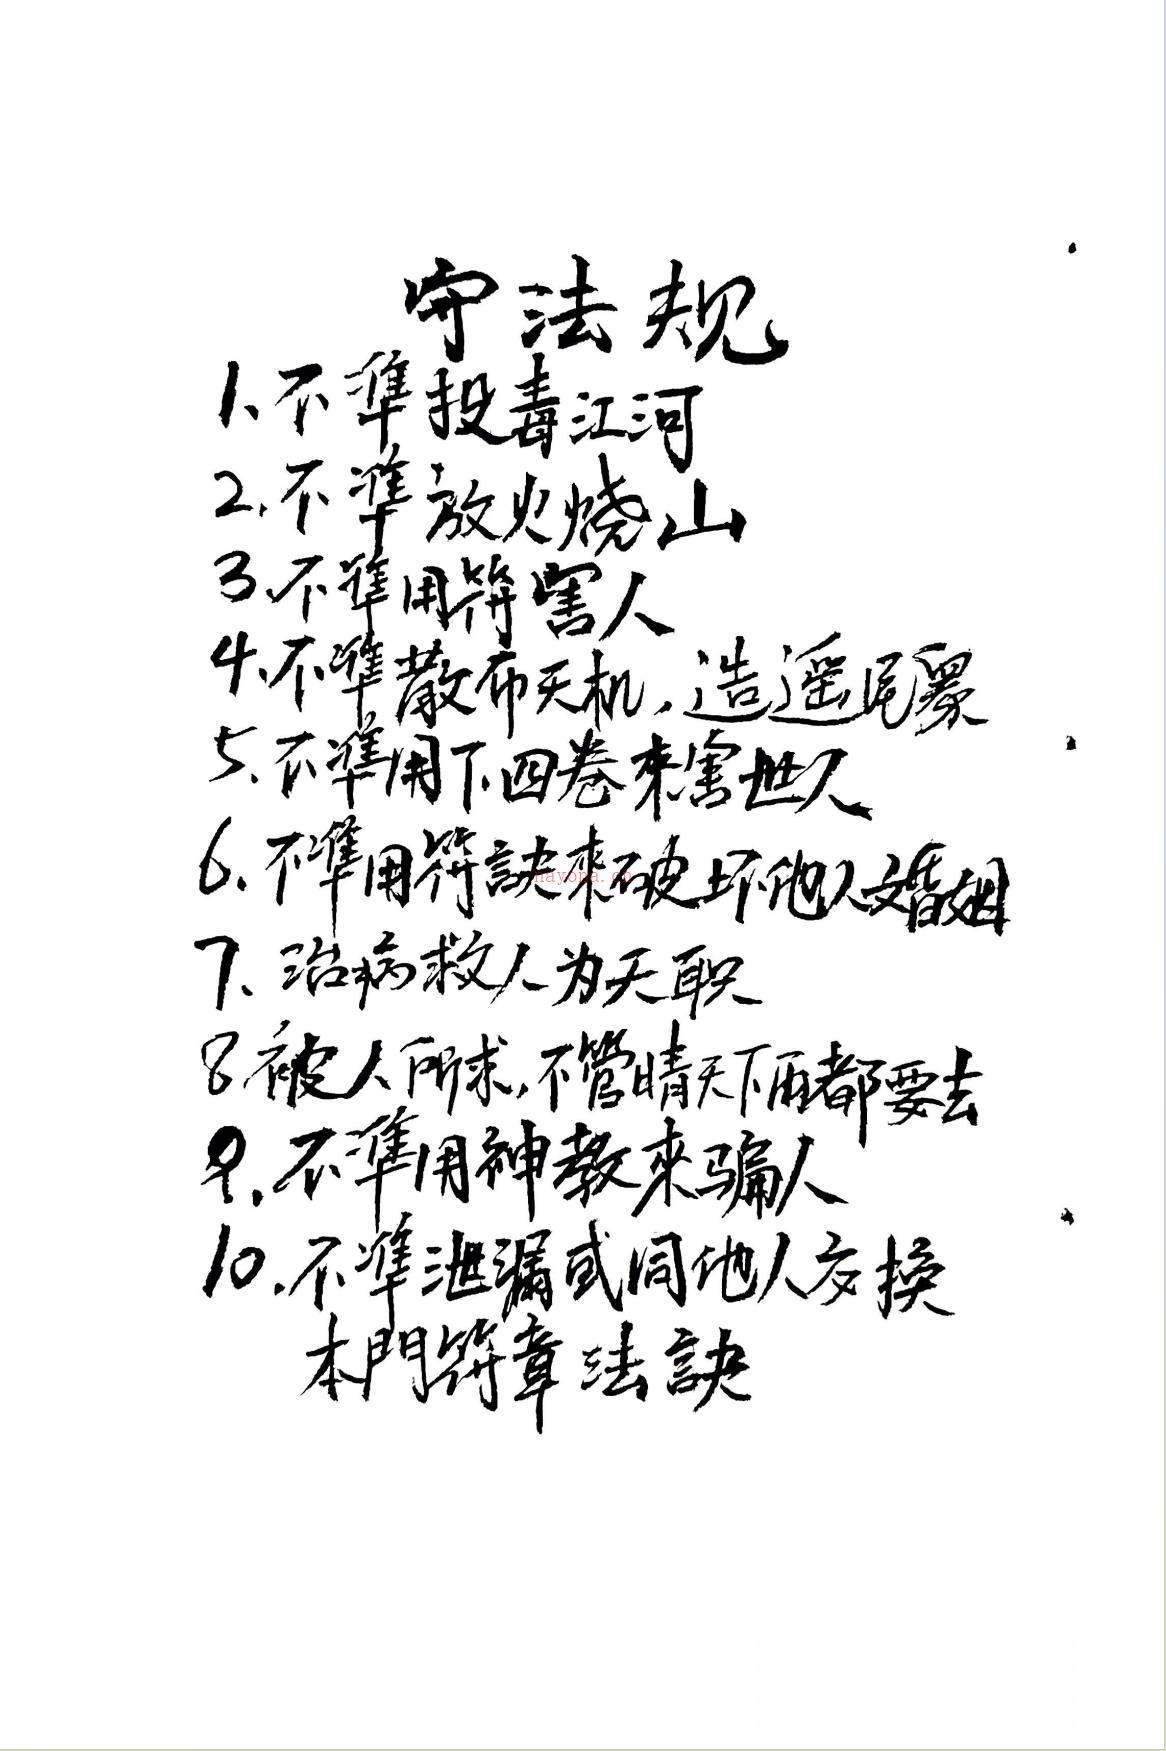 守法规
1、不準投毒江河
2、不準放火烧山
3、不準用符害人
4、不準散布天机，造遥尾眾
5、不準用下四卷來害世人
6、不準用符訣來破坏他人婚姻
nayona.cn
7、治病救人为天职
8、被人所求，不管晴天下雨都要去
9、不準用神教來骗人
10、不準泄漏或同他人交換
本門符章法訣